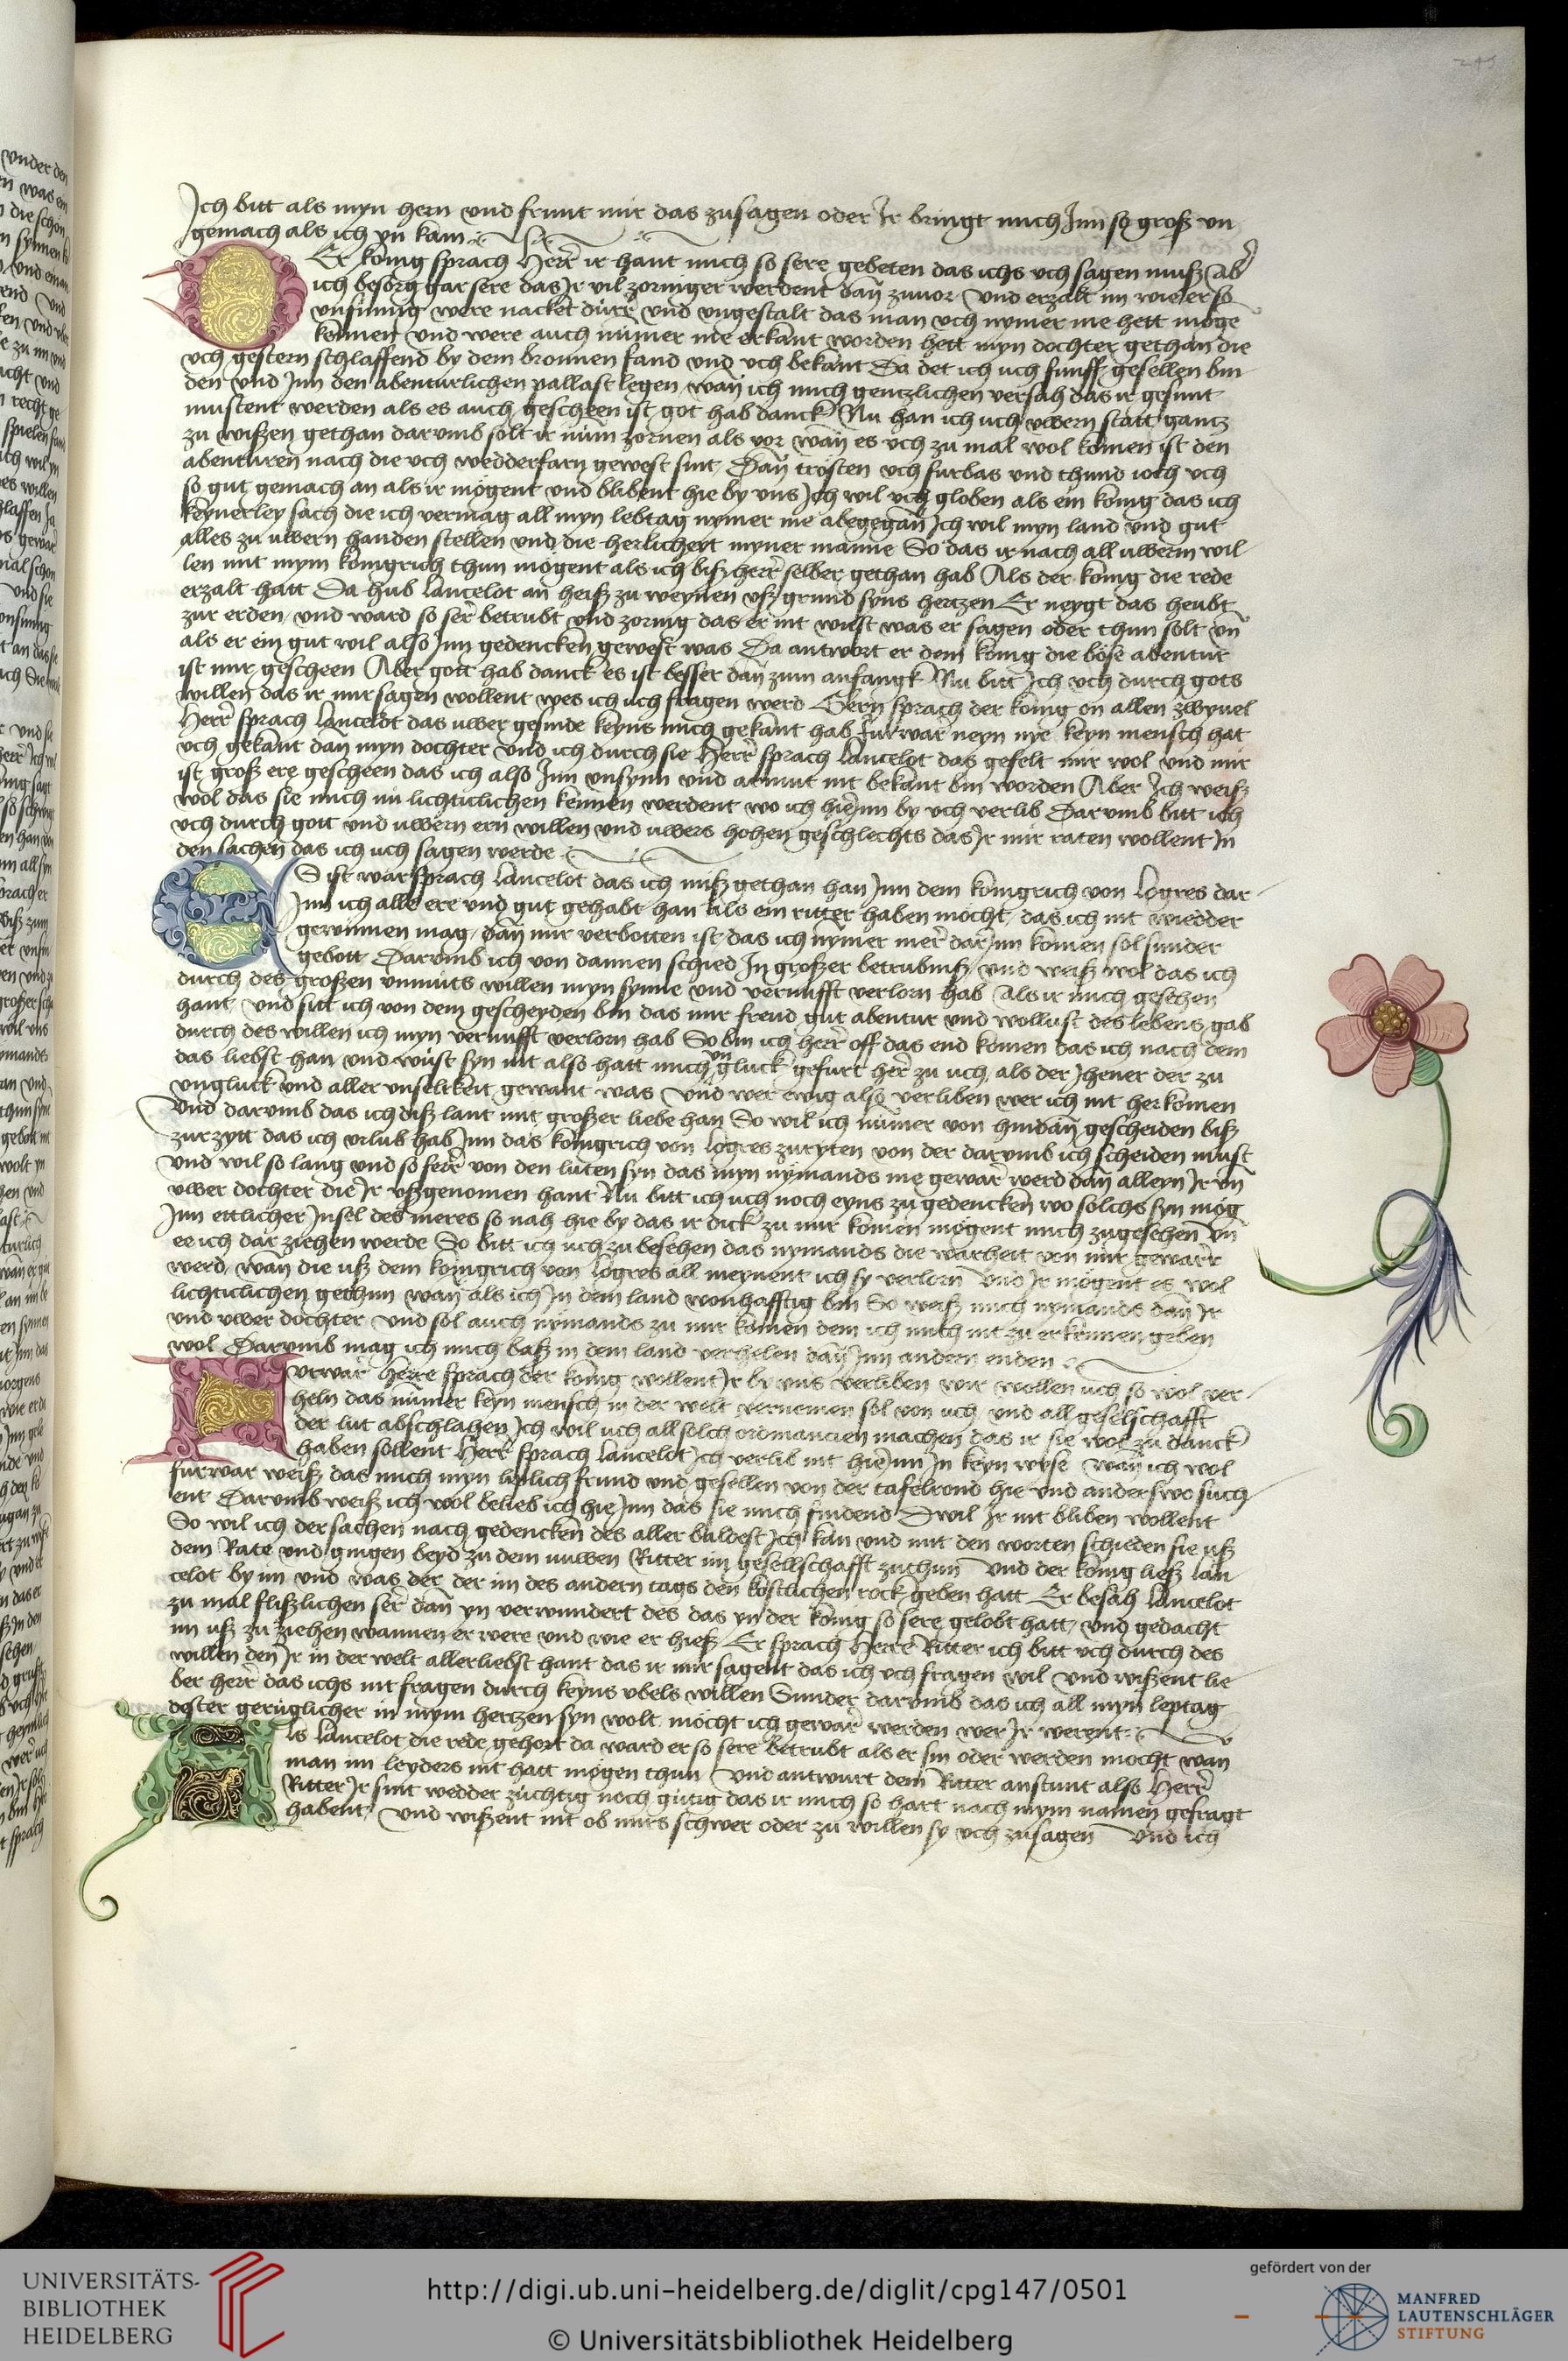 Ich bitt als myn hern vnd frunt mir das zusagen oder Ir bringt mich Inn so groß vn
gemach als ich yn kam
DEr konig sprach Herr ir hant mich so sere gebeten das ichs vch sagen muß Ab
ich besorg gar sere das Ir vil zorniger werdent dañ zuuor Vnd erzalt im wie er so
vnsinnig were nacket dürr vnd vngestalt das man vch nymer me hett moge
kennen Vnd were auch nůmer me erkant worden hett myn dochter gethan die
vch gestern schlaffend by dem bronnen fand vnd vch bekant Da det ich uch funff gesellen bin
den vnd Inn den abenturlichen pallast legen wañ ich mich gentzlichen versah das ir gesunt
mustent werden als es auch gescheen ist got hab danck Nu han ich uch uwern statt gantz
zu wißen gethan darvmb solt ir nům zornen als vor wañ es vch zu mal wol komen ist den
abenturen nach die vch wedderfarn gewest sint Dañ trosten vch furbas vnd thund uch vch
so gut gemach an als ir mögent vnd blibent hie by vns Ich wil vch globen als ein konig das ich
keynerley sach die ich vermag all myn lebtag nymer me abegegañ Ich wil myn land vnd gut
alles zu uwern handen stellen vnd die herlicheyt myner manne So das ir nach all uwerm wil
len mit mym konigrich thun mogent als ich biß herr selber gethan hab Als der konig die rede
erzalt hatt Da hub Lancelot an heiß zu weynen uß grund syns hertzen Er neygt das heubt
zur erden vnd ward so ser betrubt vnd zornig das er nit wust was er sagen oder thun solt vñ
als er ein gut wil also Inn gedencken gewest was Da antwort er dem konig die böse abentur
ist mir gescheen Aber gott hab danck es ist besser dañ zum anfangk Nu bitt Ich vch durch gots
willen das ir mir sagen wollent wes ich uch fragen werd Gern sprach der konig on allen zwyuel
Herr sprach Lancelot das uwer gesinde keyns mich gekant hab furwar neyn nye keyn mensch hat
vch gekant dañ myn dochter Vnd ich durch sie Herr sprach Lancelot das gefelt mir wol vnd mir
ist groß ere gescheen das ich also Inn vnsynn vnd armut nit bekant bin worden Aber Ich weiß
wol das sie mich im lichticlichen kennen werdent wo ich hie Inn by vch verlib Darumb bitt ich
vch durch gott vnd uwern ern willen vnd uwers hohen geschlechts das Ir mir raten wollent In
den sachen das ich uch sagen werde
ES ist war sprach Lancelot das ich miß gethan han Inn dem konigrich von Logres dar
Inn ich alle ere vnd gut gehabt han als ein ritter haben mocht das ich nit wiedder
gewinnen mag dañ mir verbotten ist das ich nymer mer dar Inn komen sol sunder
gebott Darumb ich von dannen schied In großer betrubniß vnd weiß wol das ich
durch des großen vnmuts willen myn synne vnd vernufft verlorn hab Als ir mich gesehen
hant Vnd sitt ich von dem gescheyden bin das mir freud gut abentur vnd wollust des lebens gab
durch des willen ich myn vernufft verlorn hab So bin ich herr off das end komen das ich nach dem
das liebst han vnd wust syn nit also hatt mich vngluck gefurt her zu uch als der Jhener der zu
vngluck vnd aller vnselikeit gewant was Vnd wer ewig also verliben wer ich nit her komen
Vnd darvmb das ich diß lant mit großer liebe han So wil ich nůmer von hindañ gescheiden biß
zur zytt das ich vrlub hab Inn das konigrich von Logres zuryten von der darvmb ich scheiden must
Vnd wil so lang vnd so ferr von den luten syn das myn nymands me gewar werd dañ alleyn Ir vñ
uwer dochter die Ir ußgenomen hant Nu bitt ich uch noch eyns zu gedencken wo solchs syn mög
Inn ettlicher Insel des meres so nah hie by das ir dick zu mir komen mögent mich zugesehen Vñ
ee ich dar ziehen werde So bitt ich uch zu besehen das nymands die warheit von mir gewarr
werd wañ die uß dem konigrich von Logres all meynent ich sy verlorn Vnd Ir mögent es wol
lichticlichen gethun wañ als ich In dem land wonhafftig bin So weiß mich nymands dañ Ir
vnd uwer dochter Vnd sol auch nymands zu mir komen dem ich mich nit zu erkennen geben
wol Darvmb mag ich mich baß in dem land verhelen dañ Inn andern enden
FVrwar herre sprach der konig wollent Ir by vns verliben wir wollen uch so wol ver
heln das nůmer keyn mensch in der welt vernemen sol von uch vnd all geselschafft
der lut abschlahen Ich wil uch all solch ordinancien machen das ir sie wol zu danck
haben sollent Herr sprach Lancelot Ich verlib nit hie Inn In keyn wyse wañ ich wol
furwar weiß das mich myn liplich frund vnd gesellen von der tafelrond hie vnd anderswo such
ent Darvmb weiß ich wol belieb ich hie Inn das sie mich findend Dwil Ir nit bliben wollent
So wil ich der sachen nach gedencken des aller baldest Ich kan vnd mit den worten schieden sie uß
dem Rate vnd gingen beyd zu dem nuwen Ritter im gesellschafft zuthun Vnd der konig ließ Lan
celot by im vnd was der der im des andern tags den kostlichen rock geben hatt Er besah Lancelot
zu mal flißlichen ser dañ yn verwundert des das yn der konig so sere gelobt hatt vnd gedacht
im uß zu ziehen wannen er were vnd wie er hieß Er sprach Herre Ritter ich bitt vch durch des
willen den Ir in der welt allerliebst hant das ir mir sagent das ich vch fragen wil Vnd wißent lie
ber herr das ichs nit fragen durch keyns vbels willen Sunder darvmb das ich all myn leptag
dester gerüglicher in mym hertzen syn wolt möcht ich gewar werden wer Ir werent
Als Lancelot die rede gehort da ward er so sere betrubt als er sin oder werden mocht wan
man im leyders nit hatt mögen thun Vnd antwurt dem Ritter anstunt also Herr
Ritter Ir sint wedder zuchtig noch gutig das ir mich so hart nach mym namen gefragt
habent Vnd wißent nit ob mirs schwer oder zu willen sy vch zusagen Vnd ich
UNIVERSITÄTS-
BIBLIOTHEK
HEIDELBERG
http://digi.ub.uni-heidelberg.de/diglit/cpg147/0501
© Universitätsbibliothek Heidelberg
gefördert von der
MANFRED
LAUTENSCHLÄGER
STIFTUNG